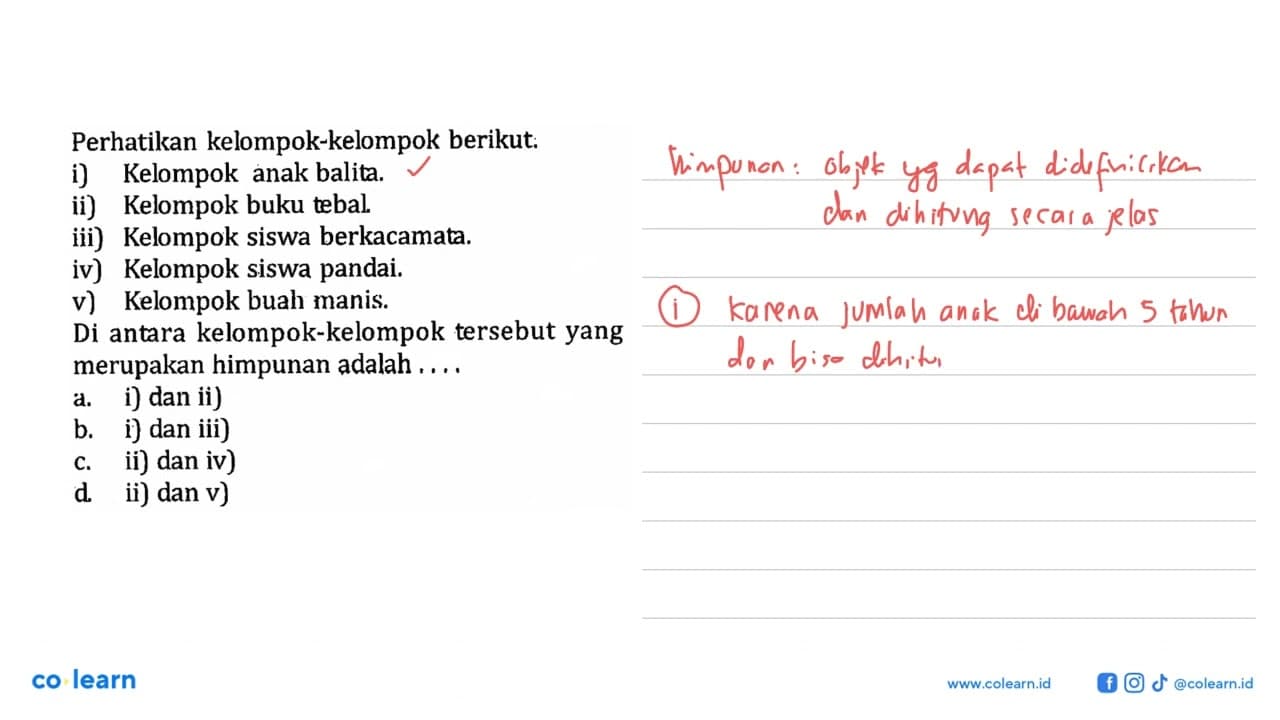 Perhatikan kelompok-kelompok berikut.
i) Kelompok anak balita.
ii) Kelompok buku tebal.
iii) Kelompok siswa berkacamata.
iv) Kelompok siswa pandai.
v) Kelompok buah manis.
Di antara kelompok-kelompok tersebut yang
merupakan himpunan adalah ....
a. i) dan ii)
b. i) dan iii)
c. ii) dan iv)
d. ii) dan v)
himpunan : objek yg dapat didefinisikan
dan dihitung secara jelas
i karena jumlah anak di bawah 5 tahun
dan bisa dihitu
co learn
www.colearn.id
@colearn.id